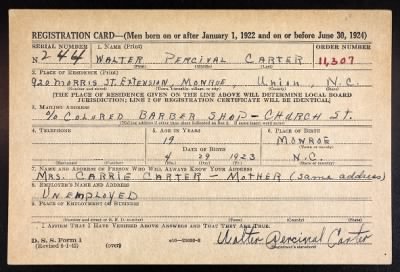 REGISTRATION CARD—(Men born on or after January 1, 1922 and on or before June 30, 1924)
SERIAL NUMBER 1. NAME (Print) ORDER NUMBER
N 244 WALTER PERCIVAL CARTER 11,307
(First) (Middle) (Last)
2. PLACE OF RESIDENCE (Print)
920 MORRIS ST. EXTENSION, MONROE, Union, N.C.
(Number and street) (Town, township, village, or city) (County) (State)
[THE PLACE OF RESIDENCE GIVEN ON THE LINE ABOVE WILL DETERMINE LOCAL BOARD
JURISDICTION; LINE 2 OF REGISTRATION CERTIFICATE WILL BE IDENTICAL]
3. MAILING ADDRESS
c/o COLORED BARBER SHOP - CHURCH ST.
[Mailing address if other than place indicated on line 2. If same insert word same]
4. TELEPHONE 5. AGE IN YEARS 6. PLACE OF BIRTH
19 MONROE
DATE OF BIRTH (Town or county)
4 29 1923 N.C.
(Exchange) (Number) (Mo.) (Day) (Yr.) (State or country)
7. NAME AND ADDRESS OF PERSON WHO WILL ALWAYS KNOW YOUR ADDRESS
MRS. CARRIE CARTER - MOTHER (Same address)
8. EMPLOYER'S NAME AND ADDRESS
UNEMPLOYED
9. PLACE OF EMPLOYMENT OR BUSINESS
(Number and street or R. F. D. number) (Town) (County) (State)
I AFFIRM THAT I HAVE VERIFIED ABOVE ANSWERS AND THAT THEY ARE TRUE.
D. S. S. Form 1
(Revised 6-1-42) (over) Walter Percival Carter